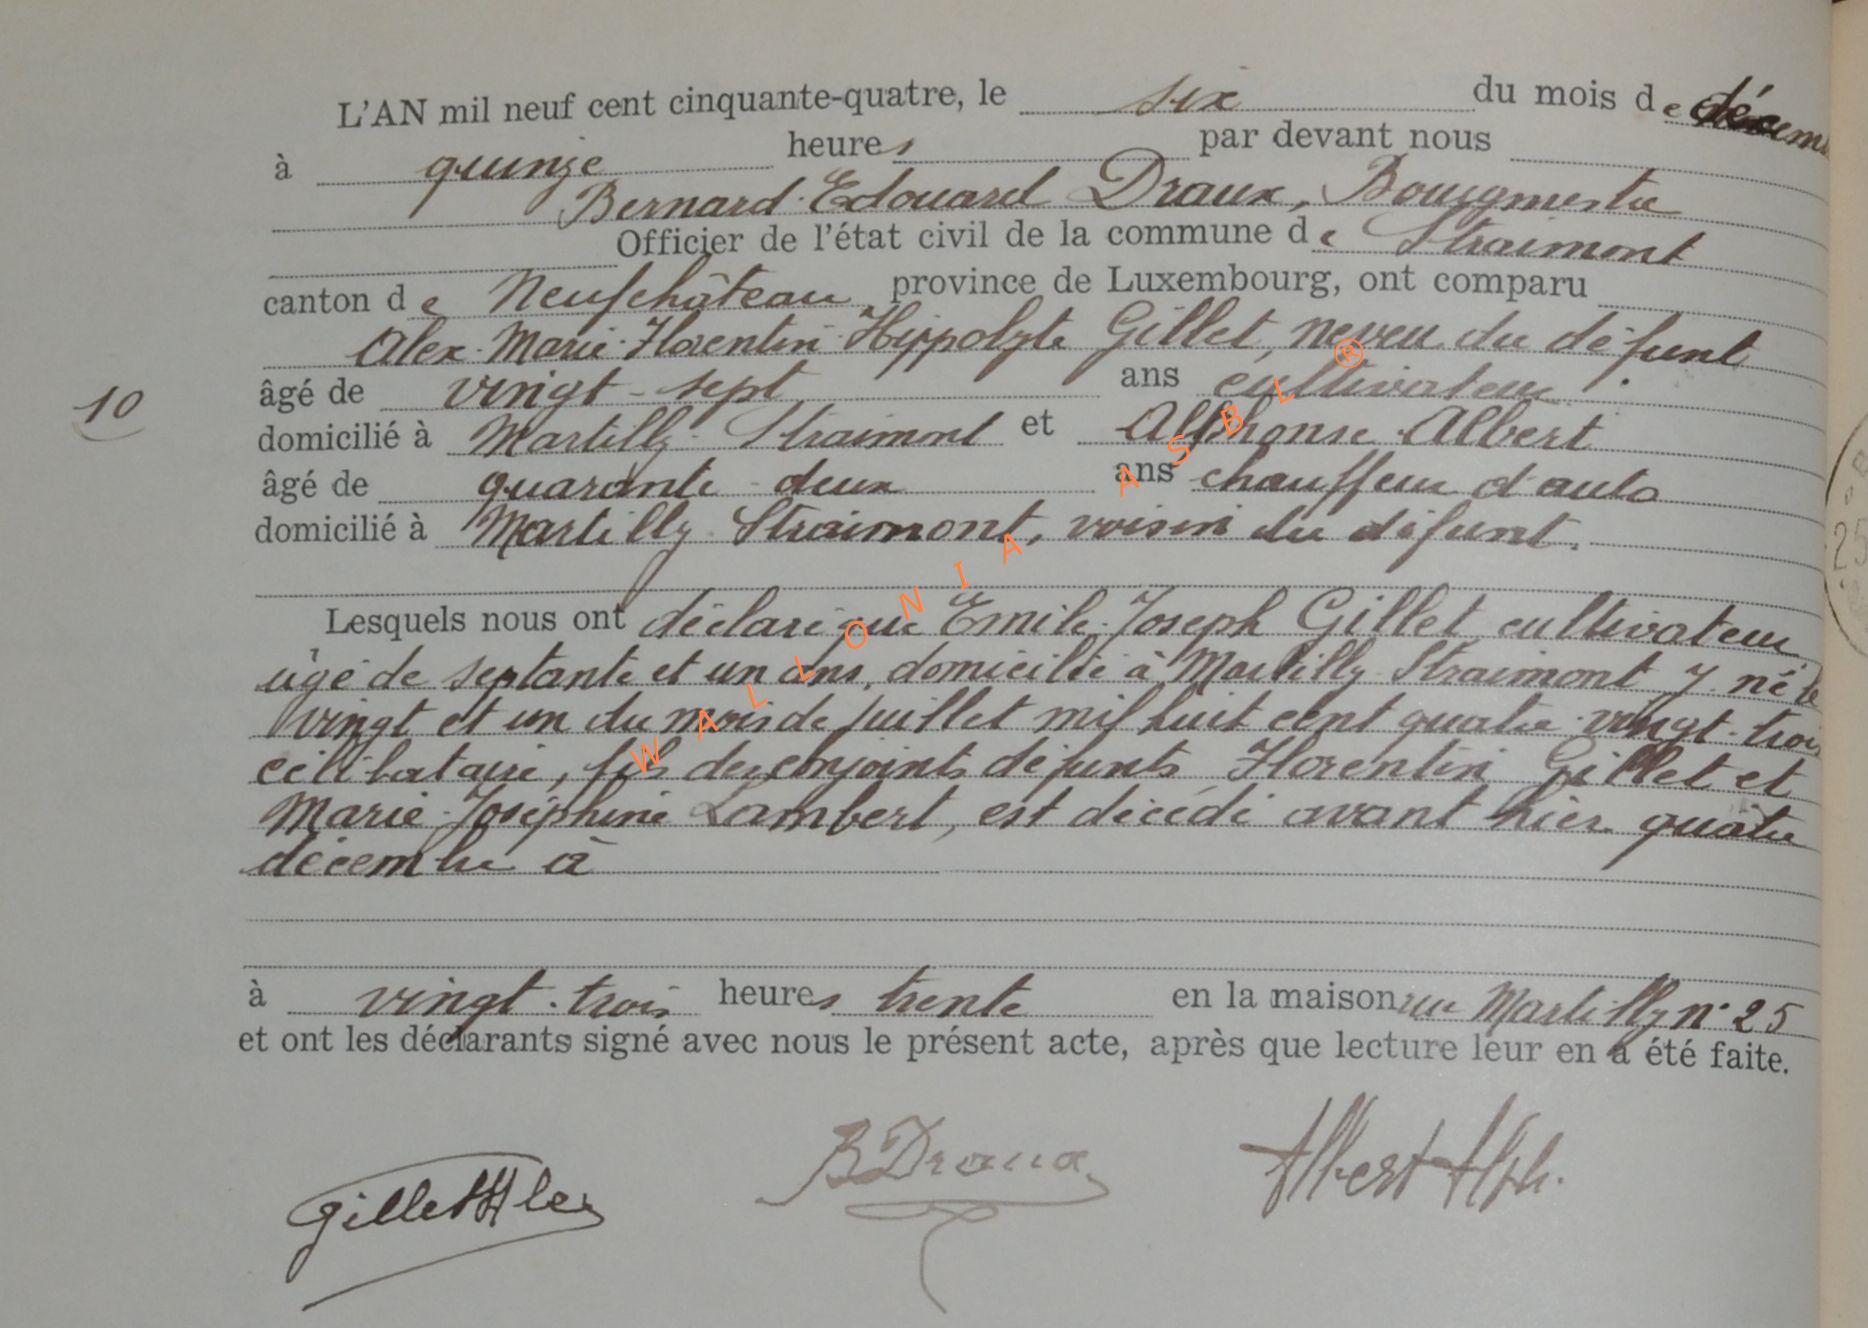 L'AN mil neuf cent cinquante-quatre, le six du mois de décem
à quinze heures par devant nous
Bernard-Edouard Draux, Bourgmestre
Officier de l'état civil de la commune de Straimont
canton de Neufchâteau, province de Luxembourg, ont comparu
Alex-Marie-Florentin-Hippolyte Gillet, neveu du défunt
âgé de vingt-sept ans cultivateur
10
domicilié à Martilly-Straimont et Alphonse Albert
âgé de quarante-deux ans chauffeur d'auto
domicilié à Martilly-Straimont, voisin du défunt.
Lesquels nous ont déclaré que Emile-Joseph Gillet, cultivateur
âgé de septante et un ans, domicilié à Martilly-Straimont y né le
vingt et un du mois de juillet mil huit cent quatre-vingt-trois
célibataire, fils des conjoints défunts Florentin Gillet et
Marie-Joséphine Lambert, est décédé avant hier quatre
décembre à
à vingt-trois heures trente en la maison rue Martilly n° 25
et ont les déclarants signé avec nous le présent acte, après que lecture leur en a été faite.
Gillet Alex B Draux Albert Alph.
WALLONIA ASBL ®
25